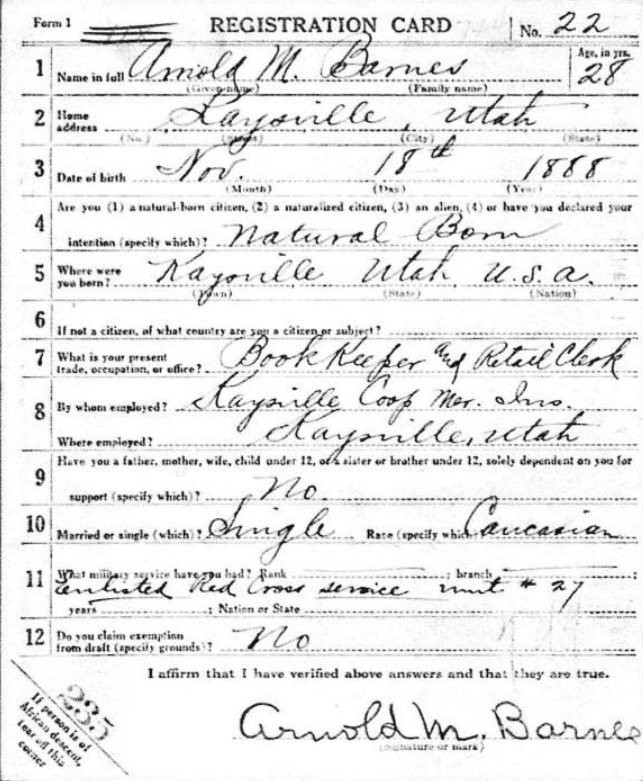 Form 1 REGISTRATION CARD No. 22
1 Name in full Arnold M. Barnes Age, in yrs. 28
(Given name) (Family name)
2 Home address Kaysville, Utah
(No.) (Street) (City) (State)
3 Date of birth Nov. 18th 1888
(Month) (Day) (Year)
4 Are you (1) a natural-born citizen, (2) a naturalized citizen, (3) an alien, (4) or have you declared your
intention (specify which)? Natural Born
5 Where were you born? Kaysville Utah U.S.A.
(Town) (State) (Nation)
6 If not a citizen, of what country are you a citizen or subject?
7 What is your present trade, occupation, or office? Book Keeper and Retail Clerk
8 By whom employed? Kaysville Coop Mer. Ins.
Where employed? Kaysville, Utah
9 Have you a father, mother, wife, child under 12, or a sister or brother under 12, solely dependent on you for
support (specify which)? No.
10 Married or single (which)? Single Race (specify which) Caucasian
11 What military service have you had? Rank ; branch
Enlisted Red Cross service unit # 27
years ; Nation or State
12 Do you claim exemption from draft (specify grounds)? No
I affirm that I have verified above answers and that they are true.
235
If person is of
African descent,
tear off this
corner
Arnold M. Barnes
(Signature or mark)